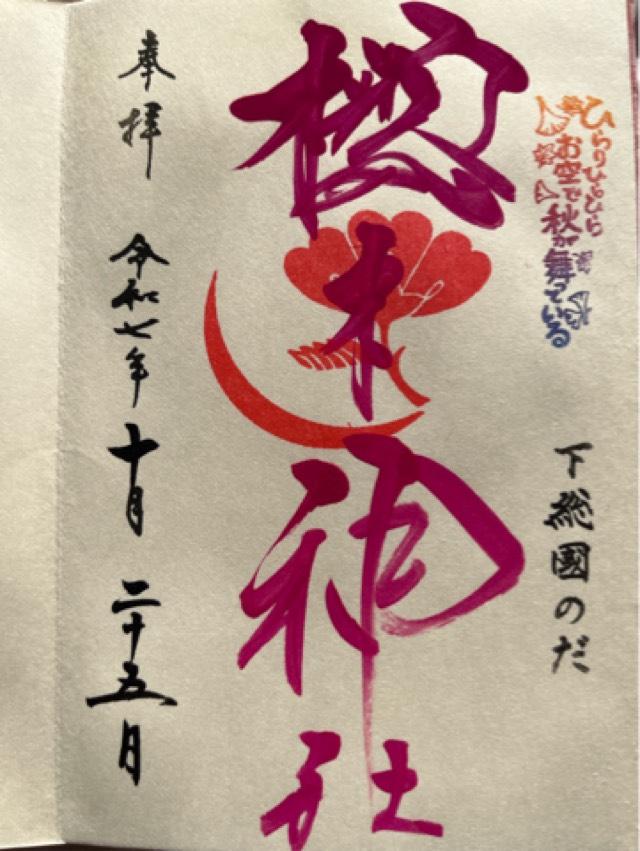 ひらりひらひら
お空で秋が舞っている
下総國のだ
櫻木神社
奉拝 令和七年 十月 二十五日